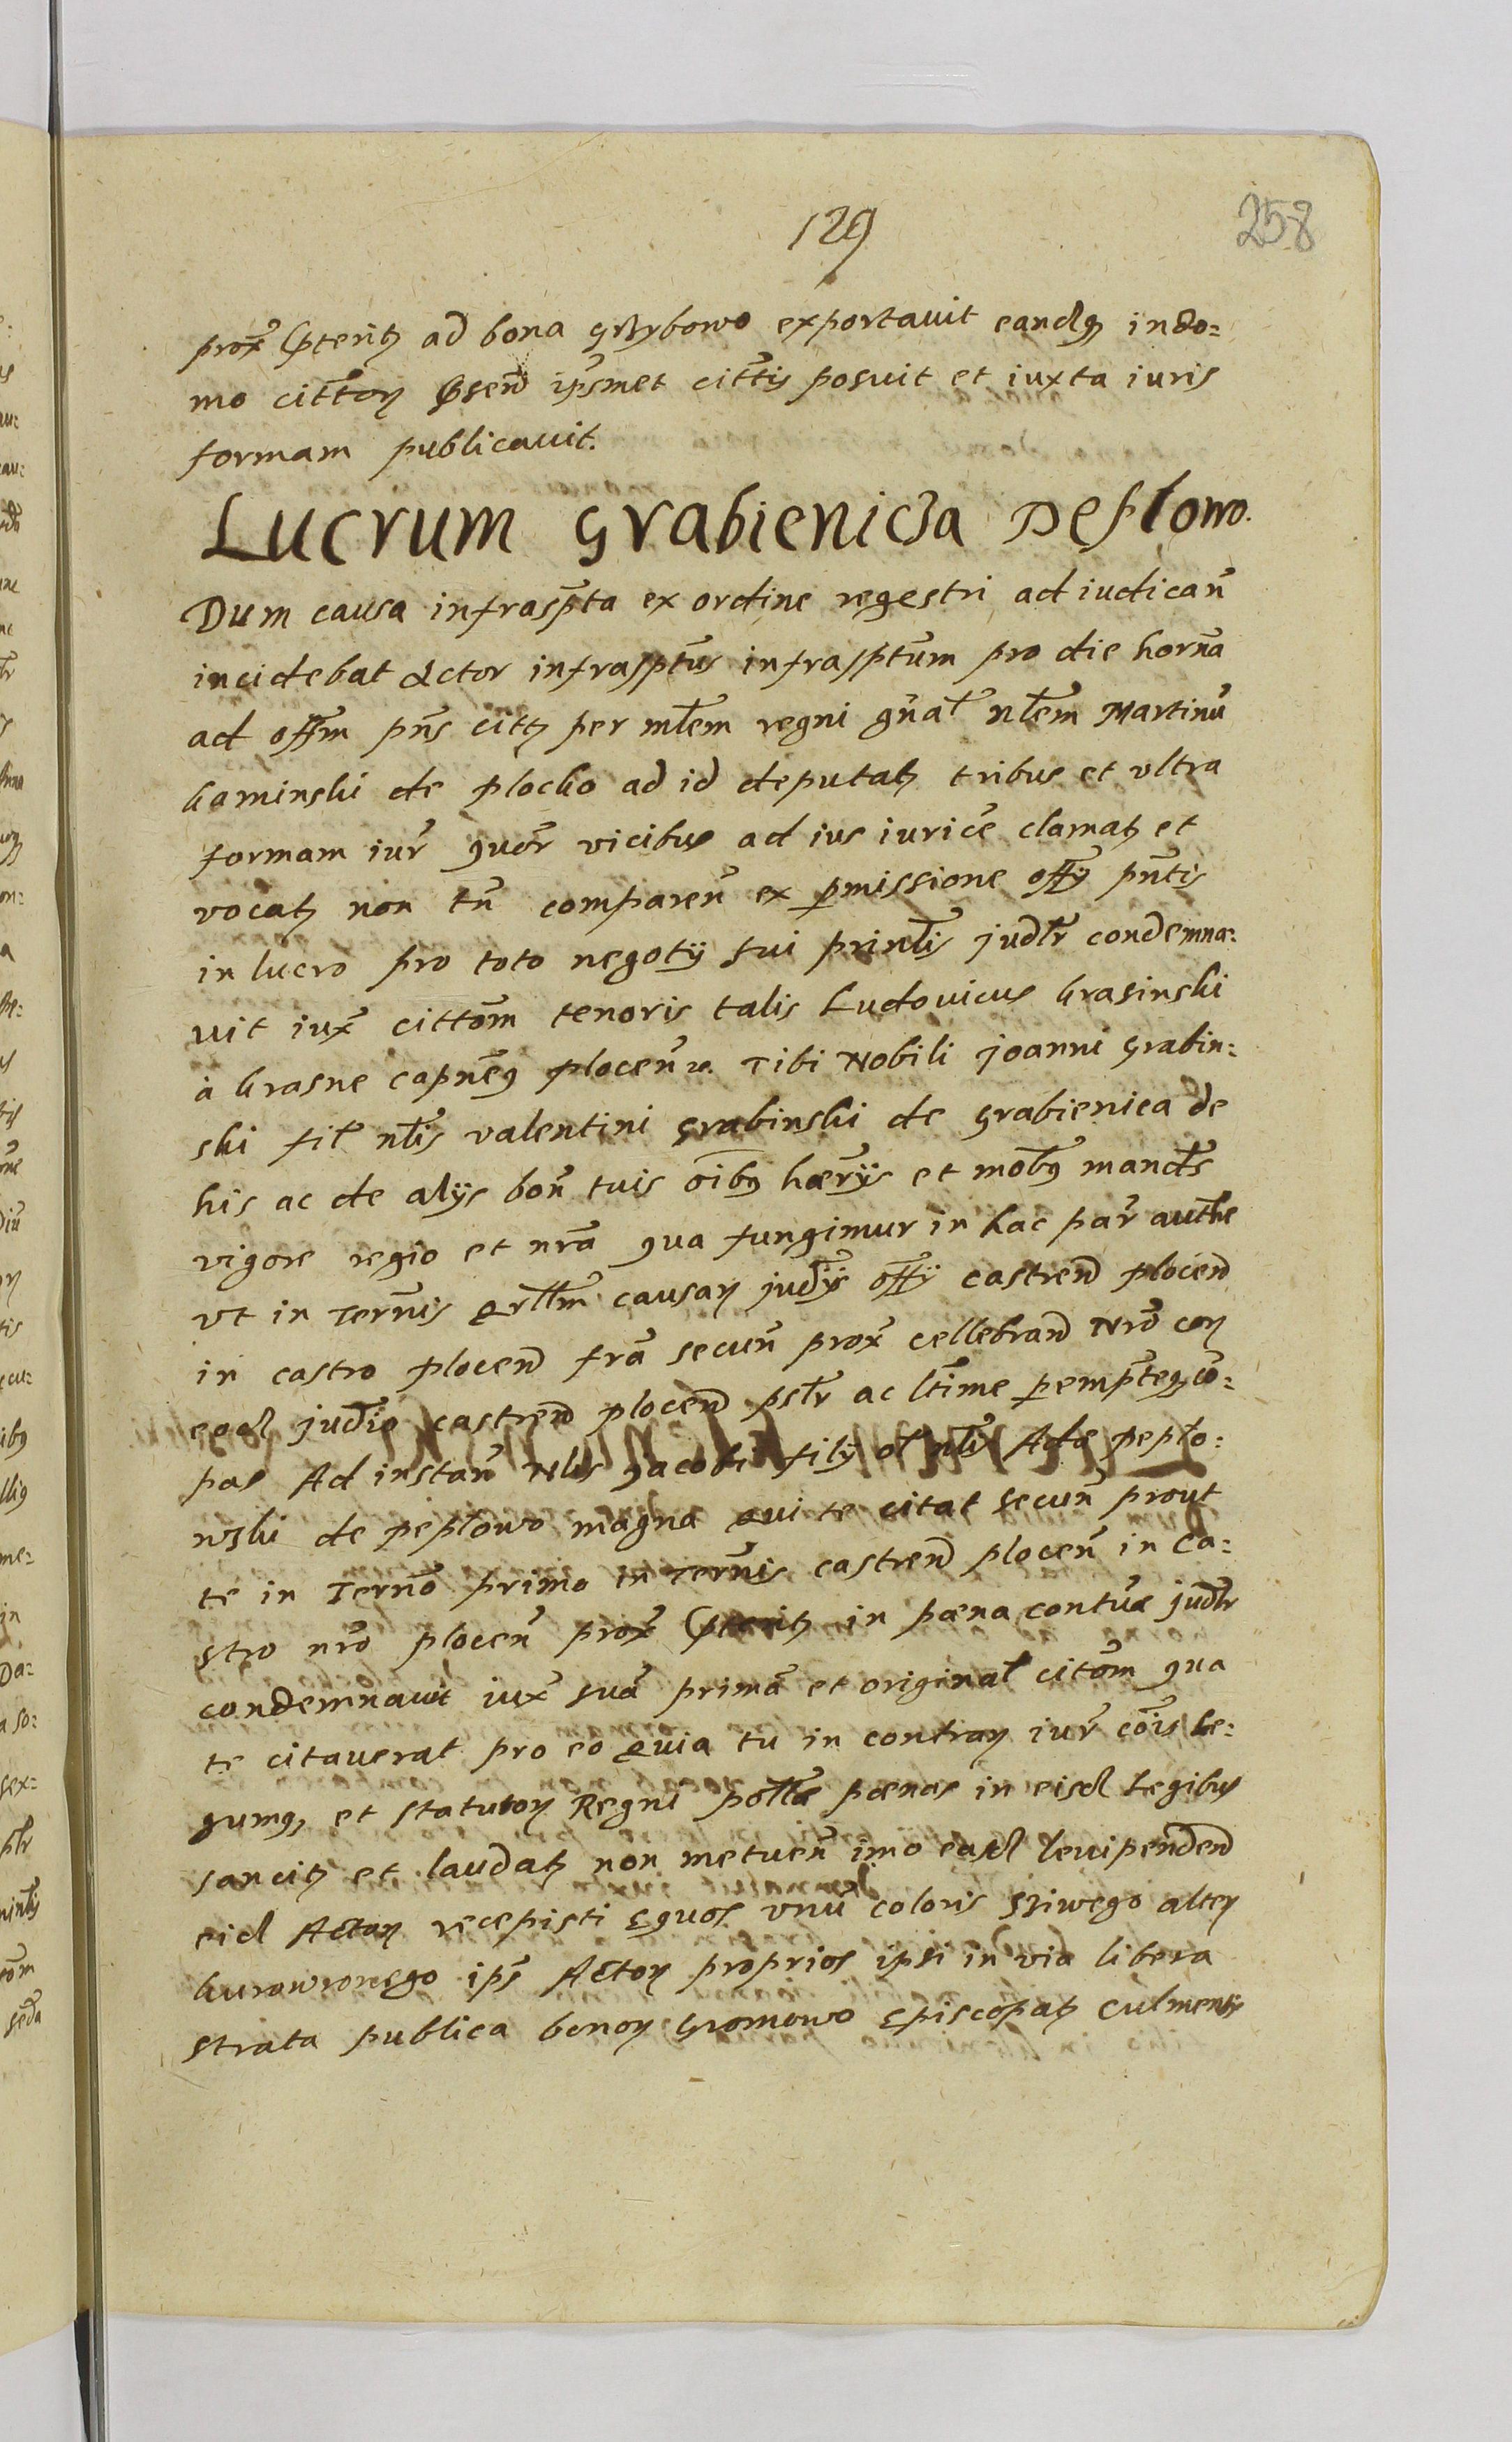 129
258
prox̃ p̱teritꝫ ad bona grzybowo exportauit eandqꝫ indo=
mo cittor̃ p̱sen̄ ip̄smet cittis̃ posuit et iuxta iuris
formam publicauit.
Lucrum Grabienicza Peplowo.
Dum causa infrasp̄ta ex ordine regestri ad iudican̄
incidebat Actor infrasp̄tus infrasp̄tum pro die horna
ad offm̄ pn̄s citt̄ꝫ per mlem̄ regni gn̄al nlem̄ Martinū
kaminski de plocko ad id deputatꝫ tribus et vltra
formam iur̃ quor̃ vicibus ad ius iurice clamatꝫ et
vocatꝫ non tn̄ comparen̄ ex p̱missione offy pn̄tis
in lucro pro toto negotÿ sui prinlis̃ judlr̃ condemna=
uit iux̃ cittom̄ tenoris talis Ludouicus krasinski
a krasne capneus̃ plocen̄ Tibi Nobili joanni Grabin=
ski fil nlis̃ valentini Grabinski de Grabienica de
his ac de alÿs bon̄ tuis oībus hær̃ÿs et mobus̃ mands̃
vigore regio et nrā qua fungimur in hac par̃ authe
vt in Termis̃ qrllm̄ causar̃ judÿs̃ offÿ castren̄ plocen̄
in castro plocen̄ frā secun̄ prox̃ cellebran̄ Nrō cor̃
eodꝫ judiō castren̄ plocen̄ pslr̃ ac ltime p̱emptequō=
pas Ad instan̄ Nlis jacobi filÿ ol nlis̃ Adæ peplo=
wski de peplowo magna qui te citat secun̄ prout
te in Termō primo in Termis̃ castren̄ plocen̄ in Ca=
stro nrō plocen̄ prox̃ p̱teritꝫ in pæna contūæ judlr̃
condemnauit iux̃ suā primā et original citom̄ qua
te citauerat pro eo quia tu in contrar̃ iur̃ cōis le=
gumqꝫ et statutor̃ Regni pottā pænas in eisdꝫ Legibus
sancitꝫ et laudatꝫ non metuen̄ imo easdꝫ leuipenden̄
eidꝫ Actor̃ recepisti Equos vnū coloris ssiwego alter̃
ip̄s Actor̃ proprios ipsi in via libera
strata publica bonor̃ Gromowo Episcopatꝫ Culmensis